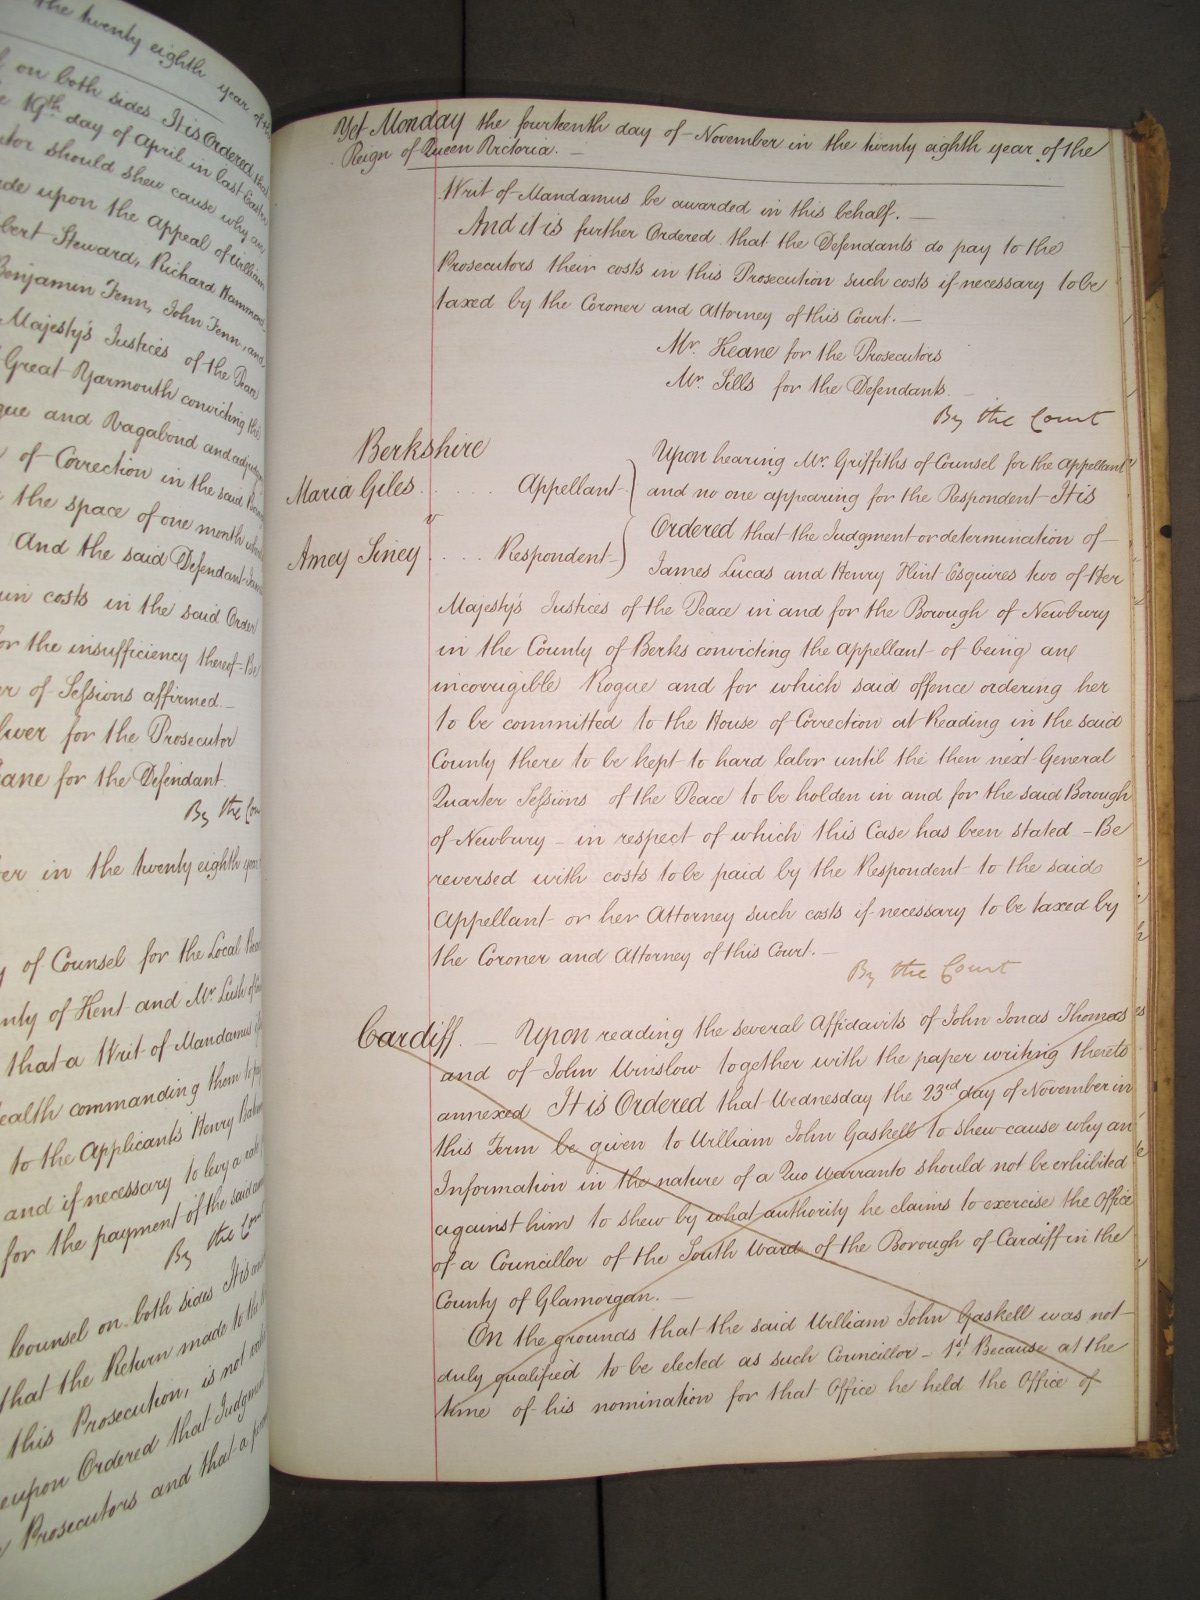 the twenty eighth year of the
on both sides It is Ordered that
19th day of April in last Easter
should shew cause why an
upon the Appeal of William
Steward, Richard Hammond
Benjamin Fenn, John Fenn, and
Majesty's Justices of the Peace
Great Yarmouth convicting the
and Vagabond and adjudging
of Correction in the said
the space of one month
And the said Defendant
costs in the said Order
for the insufficiency thereof Be
of Sessions affirmed.
for the Prosecutor
for the Defendant
By the Court
in the twenty eighth year
of Counsel for the Local
of Kent and Mr. Lush of
that a Writ of Mandamus
Health commanding them to pay
to the Applicants Henry
and if necessary to levy a rate
for the payment of the said
By the Court
Counsel on both sides It is
that the Return made to the
this Prosecution, is not
Ordered that Judgment
Prosecutors and that a
Yet Monday the fourteenth day of November in the twenty eighth year of the
Reign of Queen Victoria. —
Writ of Mandamus be awarded in this behalf. —
And it is further Ordered that the Defendants do pay to the
Prosecutors their costs in this Prosecution such costs if necessary to be
taxed by the Coroner and Attorney of this Court. —
Mr. Keane for the Prosecutors
Mr. Sills for the Defendants
By the Court
Berkshire
Maria Giles . . . . Appellant
v
Amey Siney . . . . Respondent
Upon hearing Mr. Griffiths of Counsel for the Appellant
and no one appearing for the Respondent It is
Ordered that the Judgment or determination of
James Lucas and Henry Flint Esquires two of Her
Majesty's Justices of the Peace in and for the Borough of Newbury
in the County of Berks convicting the Appellant of being an
incorrigible Rogue and for which said offence ordering her
to be committed to the House of Correction at Reading in the said
County there to be kept to hard labor until the then next General
Quarter Sessions of the Peace to be holden in and for the said Borough
of Newbury – in respect of which this Case has been stated – Be
reversed with costs to be paid by the Respondent to the said
Appellant or her Attorney such costs if necessary to be taxed by
the Coroner and Attorney of this Court. —
By the Court
Cardiff. — Upon reading the several Affidavits of John Jonas Thomas
and of John Winslow together with the paper writing thereto
annexed It is Ordered that Wednesday the 23rd day of November in
this Term be given to William John Gaskell to shew cause why an
Information in the nature of a Quo Warranto should not be exhibited
against him to shew by what authority he claims to exercise the Office
of a Councillor of the South Ward of the Borough of Cardiff in the
County of Glamorgan. —
On the grounds that the said William John Gaskell was not
duly qualified to be elected as such Councillor – 1st. Because at the
time of his nomination for that Office he held the Office of